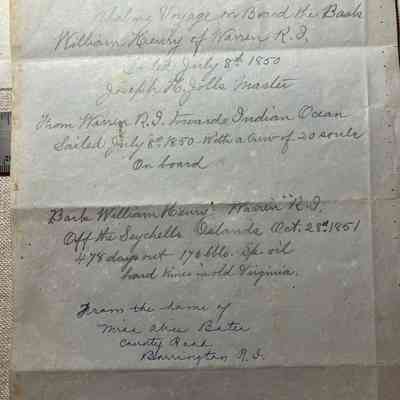 Whaling Voyage on Board the Bark
William Henry of Warren R.I.
Sailed July 8th 1850
Joseph H. Jolls Master
From Warren R.I. towards Indian Ocean
Sailed July 8th 1850 - With a Crew of 20 souls
On board
Bark William Henry" Warren" R.I.
Off the Seychells Oslands Oct. 28th 1851
478 days out 170 bbls. Sp. oil
hard times in old Virginia.
From the home of
Miss Bates
County Road
Barrington R.I.